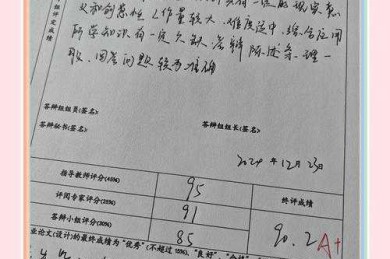 组评定成绩
义和创意性，工作量较大，难度适中，综合应用
所学知识有一定欠缺，答辩陈述条理一
般，回答问题较为准确
答辩组组员(签名)
答辩秘书(签名) 答辩组组长(签名)
2024年12月23日
指导教师评分(45%) 95 终评成绩
评阅专家评分(25%) 91 90.2 A+
答辩小组评分(30%) 85
业论文(设计)的最终成绩为"优秀"(不超过15%)、"良好"、